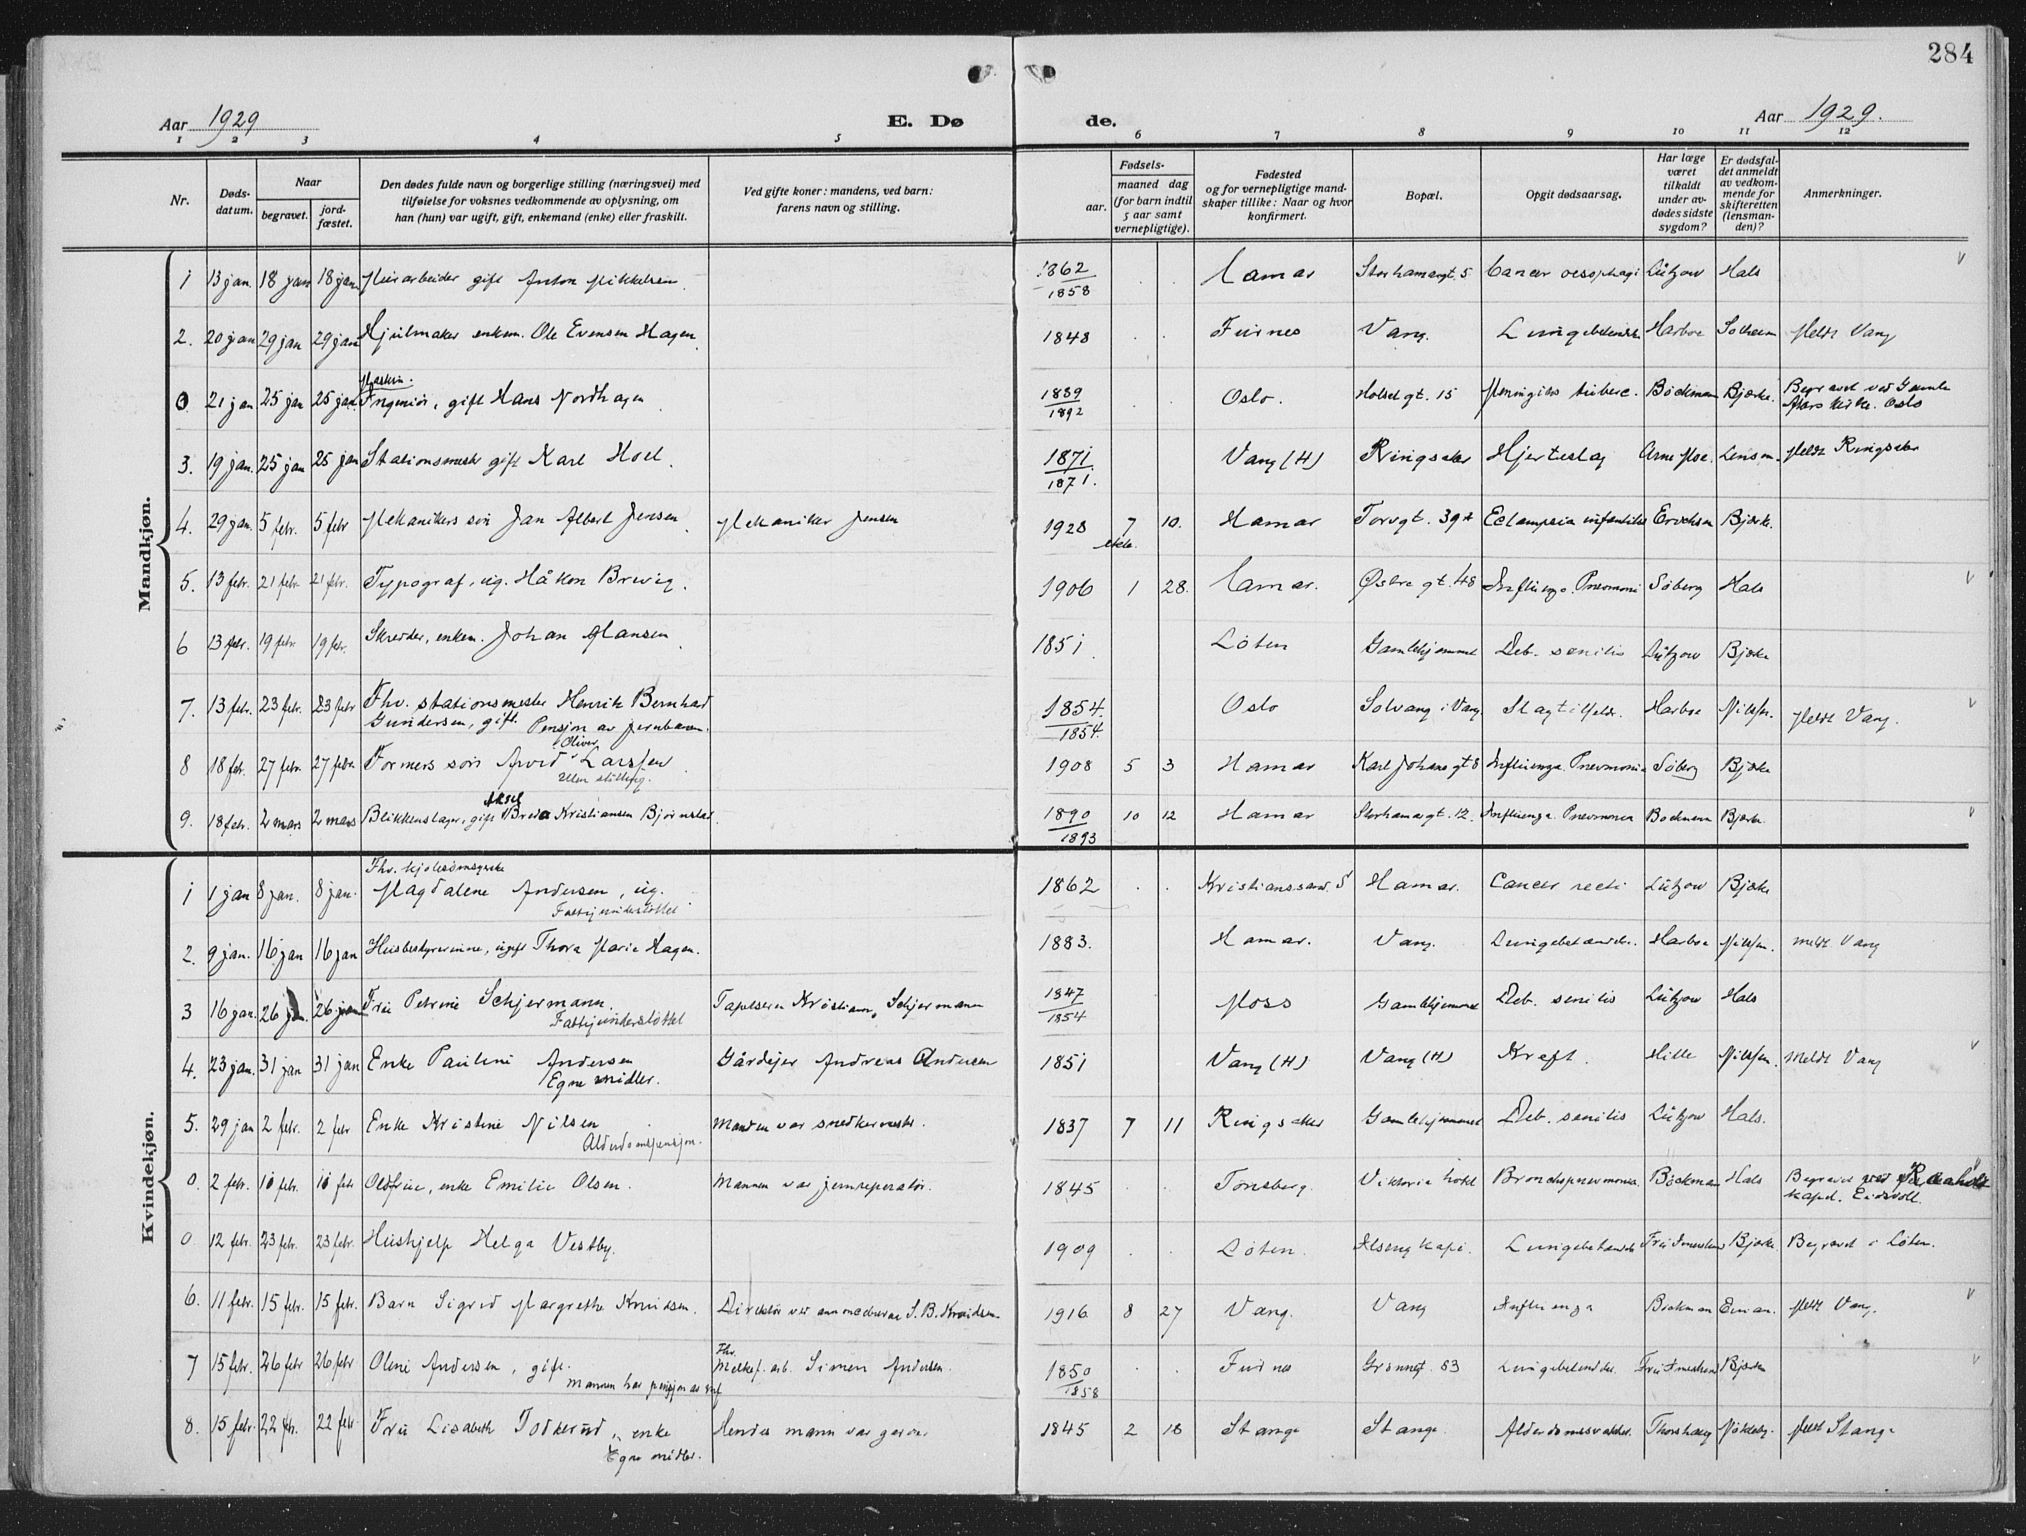 284
Aar 1929
E. Dø
de.
Aar 1929.
1 2 3 4 5 6 7 8 9 10 11 12
Nr.
Døds-
datum.
Naar
begravet.
jord-
fæstet.
Den dødes fulde navn og borgerlige stilling (næringsvei) med
tilføielse for voksnes vedkommende av oplysning, om
han (hun) var ugift, gift, enkemand (enke) eller fraskilt.
Ved gifte koner: mandens, ved barn:
farens navn og stilling.
Fødsels-
aar.
maaned dag
(for barn indtil
5 aar samt
vernepligtige).
Fødested
og for vernepligtige mand-
skaper tillike: Naar og hvor
konfirmert.
Bopæl.
Opgit dødsaarsag.
Har læge
været
tilkaldt
under av-
dødes sidste
sygdom?
Er dødsfal-
det anmeldt
av vedkom-
mende for
skifteretten
(lensman-
den)?
Anmerkninger.
Mandkjøn.
1 13 jan. 18 jan 18 jan Murarbeider gift Anton Mikkelsen. 1862/1858 Hamar Storhamargt. 5 Cancer oesophagi Lützow Hals
2. 20 jan 29 jan 29 jan Hjulmaker enkem. Ole Evensen Hagen. 1848 Furnes Vang. Lungebetendelse Harboe Solheim Meldt Vang
Maskin.
0 21 jan 25 jan 25 jan Ingeniør, gift Hans Nordhagen 1889/1892 Oslo. Holset gt. 15 Meningitis tuberc. Bøckman Bjærke. Begravet ved Gamle
Akers kirke. Oslo
3. 19 jan. 25 jan 25 jan Stationsmester gift Karl Hoel. 1871/1871. Vang (H) Ringsaker Hjerteslag Arne Moe. Lensm. Meldt Ringsaker
4. 29 jan. 5 febr. 5 febr Mekanikers søn Jan Albert Jensen Mekaniker Jensen 1928 7 10. Hamar Torvgt. 39 A Eclampsia infantilis Erichsen Bjærke.
5. 13 febr. 21 febr 21 febr. Typograf, ug. Håkon Brevig. 1906 1 28. Hamar. Østre gt. 48 Influenza. Pneumoni Søberg Hals
6 13 febr. 19 febr 19 febr. Skredder, enkem. Johan Hansen 1851. Løten Gamlehjemmet Deb. senilis Lützow Bjærke
7. 13 febr. 23 febr. 23 febr Fhv. stationsmester Henrik Bernhard
Gundersen, gift. Pensjon av jernbanen. 1854./1854. Oslo Solvang i Vang Slagtilfelde. Harboe Nilssen. Meldt Vang.
8 18 febr. 27 febr. 27 febr. Formers søn Arvid Oliver Larssen.
Uten stilling. 1908 5 3 Hamar Karl Johans gt 8 Influenza. Pneumonia Søberg Bjærke
9. 18 febr. 2 mars 2 mars Blikkenslager, gift Aksel Breda Kristiansen Bjørnstad. 1890/1893 10 12 Hamar Storhamargt. 12. Influenza. Pneumonia Bøckmann Bjærke.
Kvindekjøn.
Fhv. kjolesømsyerske
1 1 jan 8 jan. 8 jan. Magdalene Andersen, ug.
Fattigunderstøttet 1862 Kristianssand. S Hamar. Cancer recti Lützow Bjærke
2. 9 jan. 16 jan 16 jan Husbestyrerinne, ugift Thora Marie Hagen. 1883. Hamar. Vang. Lungebetændelse. Harboe Nilssen. Meldt Vang
3 16 jan. 26 jan. 26 jan Fru Petrine Schjermann.
Fattigunderstøttet Tapetserer Kristian Schjermann 1847/1854 Moss Gamlehjemmet Deb. senilis Lützow Hals
4. 23 jan. 31 jan 31 jan Enke Pauline Andersen
Egne midler. Gårdejer Andreas Andersen 1851 Vang (H) Vang (H) Kreft. Hille Nilssen. Meldt Vang
5. 29 jan 2 febr. 2 febr Enke Kristine Nilsen
Alderdomspensjon. Manden var snedkermester. 1837 7 11 Ringsaker Gamlehjemmet Deb. senilis Lützow Hals.
0. 2 febr. 10 febr. 10 febr Oldfrue, enke Emilie Olsen. Mannen var jernreperatør. 1845 Tønsberg. Viktoria hotel Bronchopneumonia. Bøckman Hals Begravet ved Raaholt
kapel. Eidsvoll.
0 12 febr. 23 febr. 23 febr. Hushjelp Helga Vestby. 1909 Løten. Lungebetændelse Bjærke. Begravet i Løten.
6. 11 febr. 15 febr. 15 febr. Barn Sigrid Margrethe Knudsen. Direktør S. B. Knudsen 1916 8 27 Vang. Vang Influenza Bøckman Meldt Vang.
7 15 febr. 26 febr 26 febr Oline Andersen, gift.
Mannen har pensjon av Fhv.
Melkef. arb. Simen Andersen. 1850/1858 Furnes Grønnegt. 83 Lungebetendelse. Bjærke
8. 15 febr. 22 febr. 22 febr. Fru Lisabeth Todkerud, enke
Egne midler. Hendes mann var garver 1845 2 18 Stange Stange. Alderdomssvakhet. Thorshaug Meldt Stange